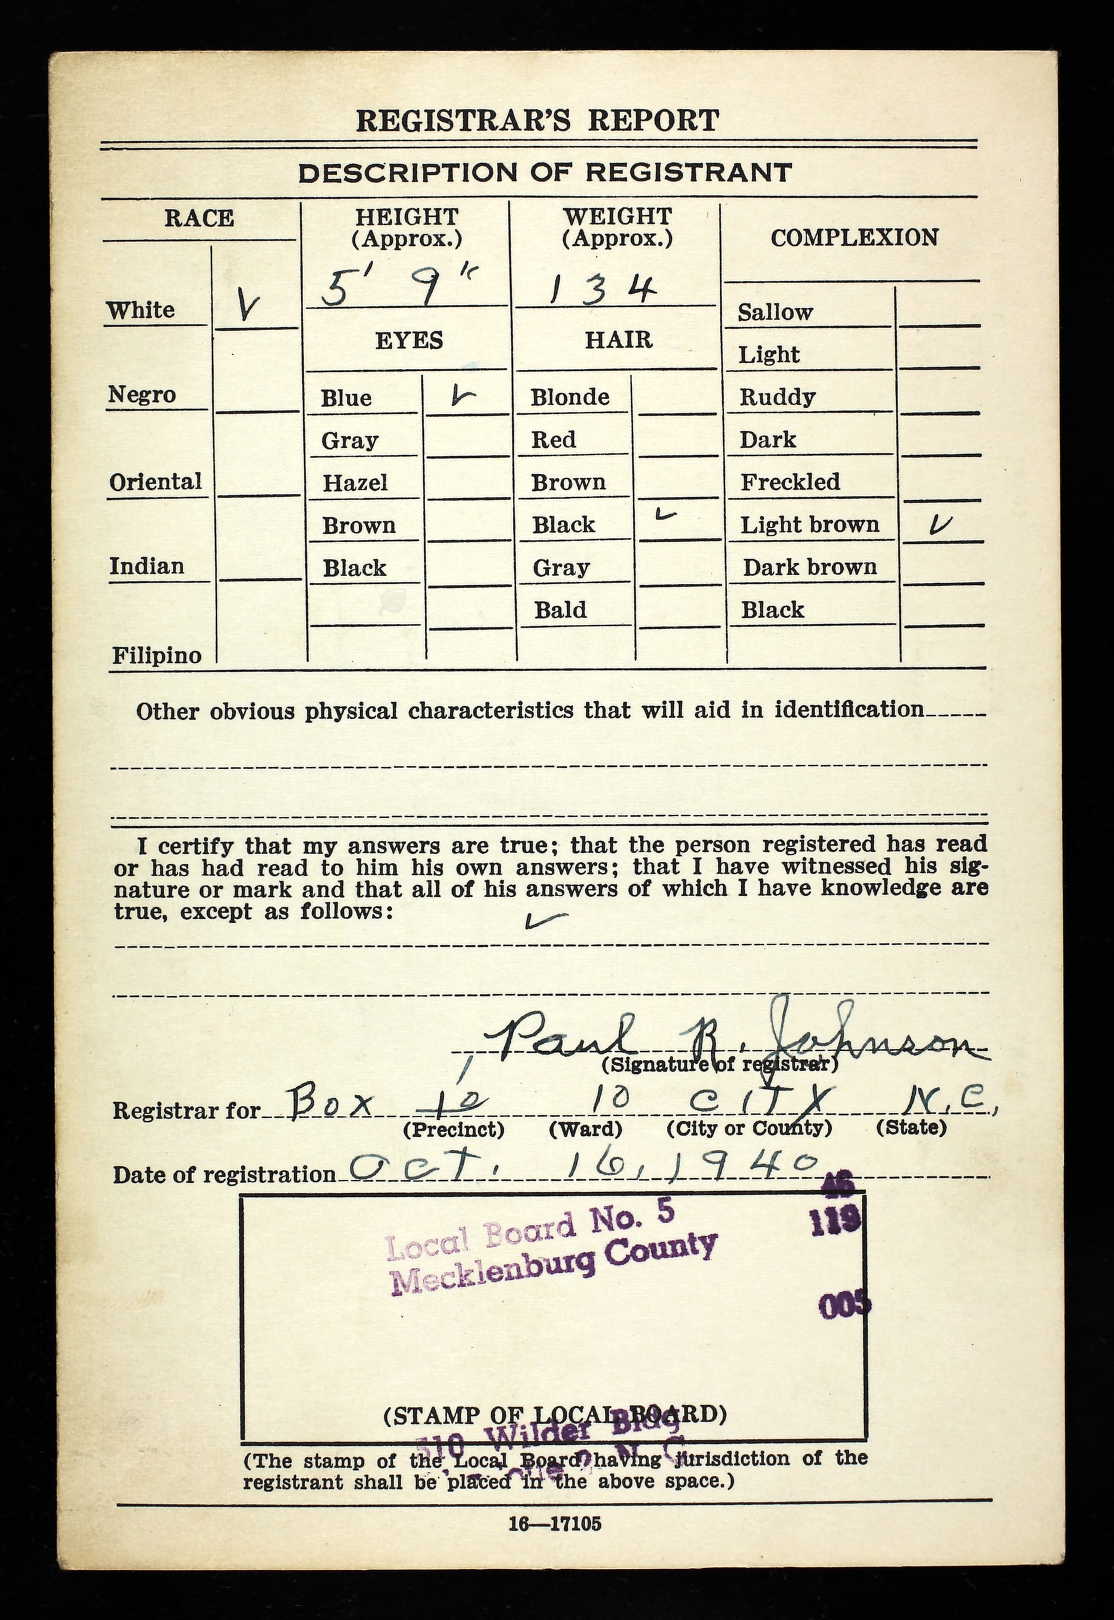 REGISTRAR'S REPORT
DESCRIPTION OF REGISTRANT
RACE
HEIGHT
(Approx.)
WEIGHT
(Approx.)
COMPLEXION
5' 9"
134
White ✓
EYES
HAIR
Sallow
Light
Negro
Blue ✓
Blonde
Ruddy
Gray
Red
Dark
Oriental
Hazel
Brown
Freckled
Brown
Black ✓
Light brown ✓
Indian
Black
Gray
Dark brown
Bald
Black
Filipino
Other obvious physical characteristics that will aid in identification
I certify that my answers are true; that the person registered has read
or has had read to him his own answers; that I have witnessed his sig-
nature or mark and that all of his answers of which I have knowledge are
true, except as follows:
✓
Paul R. Johnson
(Signature of registrar)
Registrar for Box 10 CITY N.C,
(Precinct) (Ward) (City or County) (State)
Date of registration OCT. 16, 1940
Local Board No. 5
Mecklenburg County
119
005
(STAMP OF LOCAL BOARD)
Wilder Bldg
N. C
(The stamp of the Local Board having jurisdiction of the
registrant shall be placed in the above space.)
16—17105